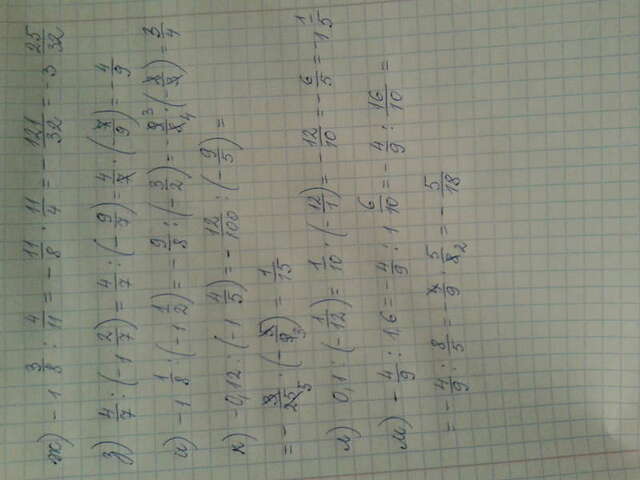 ж) -1 3/8 : 4/11 = -11/8 · 11/4 = -121/32 = -3 25/32
з) 4/7 : (-1 2/7) = 4/7 : (-9/7) = 4/7 · (-7/9) = -4/9
и) -1 1/8 : (-1 1/2) = -9/8 : (-3/2) = - 9 3/8 4 · (- 2/3) = 3/4
к) -0,12 : (-1 4/5) = -12/100 : (-9/5) =
= - 3/25 5 · (- 5/9 3) = 1/15
л) 0,1 : (-1/12) = 1/10 · (-12/1) = -12/10 = -6/5 = -1 1/5
м) -4/9 : 1,6 = -4/9 : 1 6/10 = -4/9 : 16/10 =
= -4/9 : 8/5 = -4/9 · 5/8 2 = -5/18